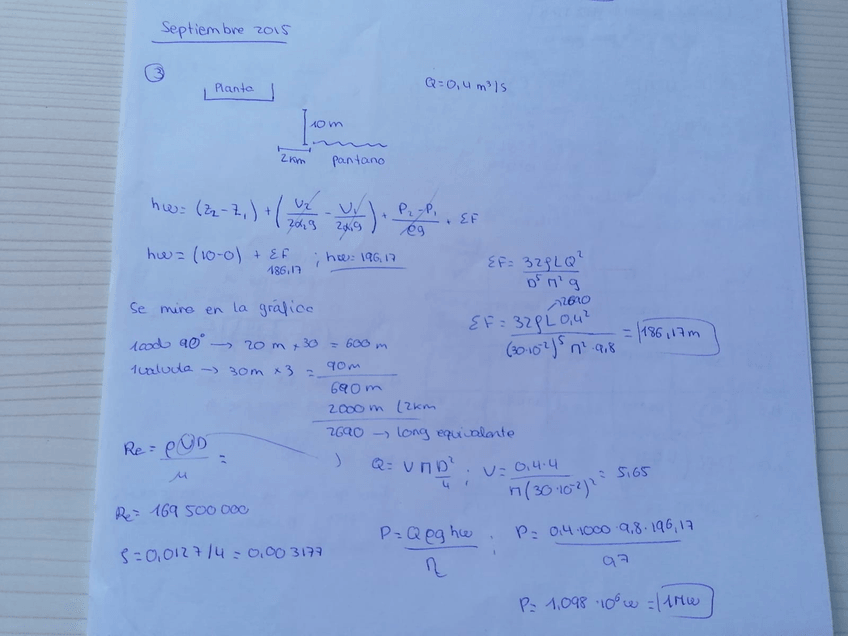 Septiembre 2015
③
Planta
Q=0,4 m³/s
10m
2km pantano
hω = (Z₂-Z₁) + (V₂/2α₂g - V₁/2α₁g) + P₂-P₁/ρg + ΣF
hω = (10-0) + ΣF ; hω = 196,17
186,17
ΣF = 32ϱLQ²/D⁵π²g
Se mira en la gráfica
2690
ΣF = 32ϱL 0,4²/(30·10⁻²)⁵ π²·9,8 = 186,17m
1codo 90° → 20m × 30 = 600m
1valvula → 30m × 3 = 90m
690m
2000m (2km
2690 → long equivalente
Re = ρVD/μ =
Q = V π D²/4 ; V = 0,4·4/π(30·10⁻²)² = 5,65
Re = 169 500 000
P = Qρg hω/η ; P = 0,4·1000·9,8·196,17/0,7
ϱ = 0,0127/4 = 0,003177
P = 1,098·10⁶ω = 1Mω